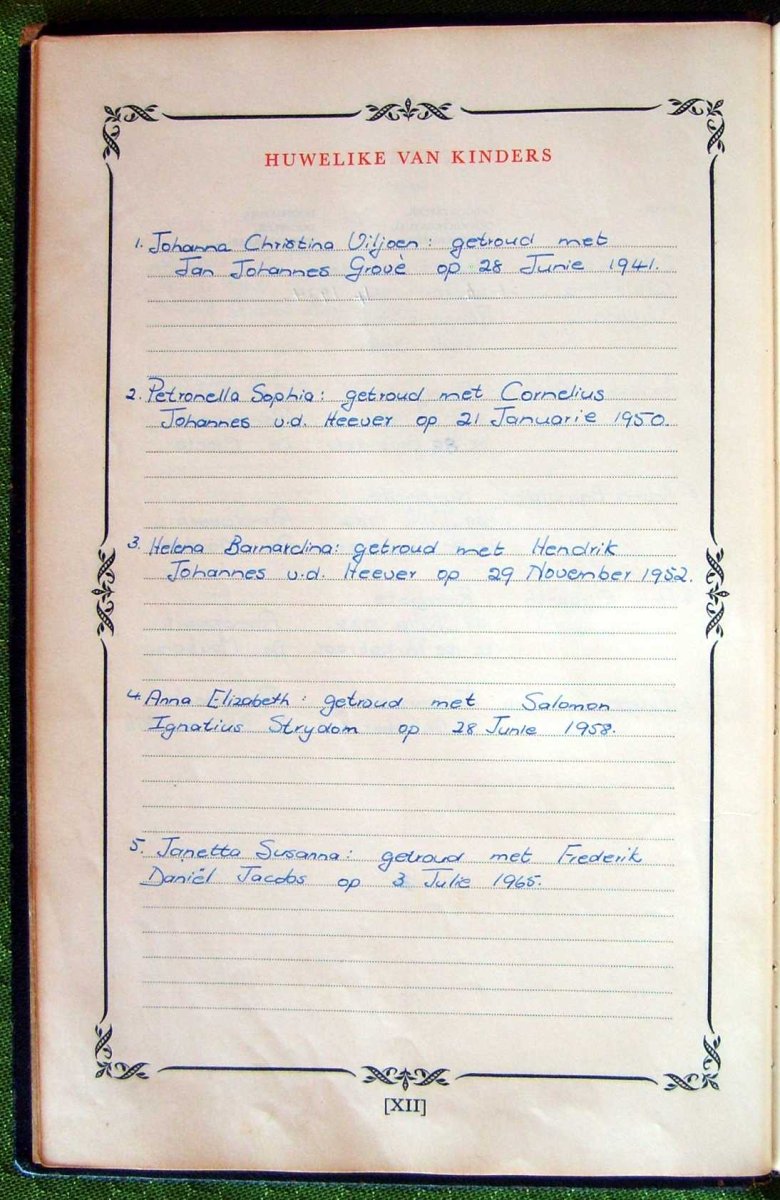 HUWELIKE VAN KINDERS
1. Johanna Christina Viljoen: getroud met
Jan Johannes Grovè op 28 Junie 1941.
2. Petronella Sophia: getroud met Cornelius
Johannes v.d. Heever op 21 Januarie 1950.
3. Helena Barnardina: getroud met Hendrik
Johannes v.d. Heever op 29 November 1952.
4. Anna Elizabeth: getroud met Salomon
Ignatius Strydom op 28 Junie 1958.
5. Janetta Susanna: getroud met Frederik
Daniël Jacobs op 3 Julie 1965.
[XII]